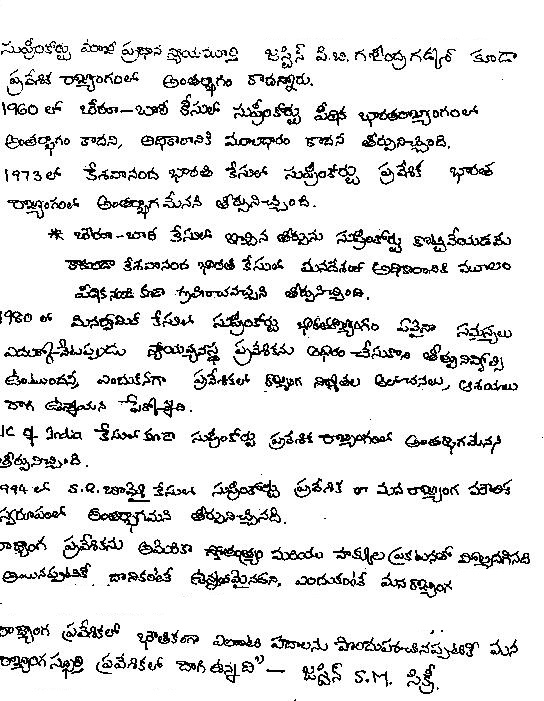 సుప్రీంకోర్టు మాజీ ప్రధాన న్యాయమూర్తి జస్టిస్ పి.బి. గజేంద్రగడ్కర్ కూడా
ప్రవేశిక రాజ్యాంగంలో అంతర్భాగం కాదన్నారు.
1960 లో బేరూ-బారి కేసులో సుప్రీంకోర్టు పీఠిక భారతరాజ్యాంగంలో
అంతర్భాగం కాదని, అధికారానికి మూలాధారం కాదనే తీర్పునిచ్చింది.
1973 లో కేశవానంద భారతి కేసులో సుప్రీంకోర్టు ప్రవేశిక భారత
రాజ్యాంగంలో అంతర్భాగమేనని తీర్పునిచ్చింది.
* బేరూ-బారి కేసులో ఇచ్చిన తీర్పును సుప్రీంకోర్టు కొట్టివేయడమే
కాకుండా కేశవానంద భారతి కేసులో మనదేశంలో అధికారానికి మూలం
పీఠిక నుండి కూడా గ్రహించవచ్చని తీర్పునిచ్చింది.
1980 లో మినర్వామిల్ కేసులో సుప్రీంకోర్టు భారతరాజ్యాంగం ఏదైనా సమస్యలు
ఎదుర్కొనేటప్పుడు న్యాయవ్యవస్థ ప్రవేశికను ఆధారం చేసుకొని
ఉంటుందన్న, ఎందుకనగా ప్రవేశికలో రాజ్యాంగ నిర్మాతల ఆలోచనలు, ఆశయాలు
దాగి ఉన్నాయని పేర్కొన్నది.
IC of India కేసులో కూడా సుప్రీంకోర్టు ప్రవేశిక రాజ్యాంగంలో అంతర్భాగమేనని
తీర్పునిచ్చింది.
1994 లో S.R. బొమ్మై కేసులో సుప్రీంకోర్టు ప్రవేశిక రా మన రాజ్యాంగ మౌలిక
స్వరూపంలో అంతర్భాగమని తీర్పునిచ్చినది.
రాజ్యాంగ ప్రవేశికను అమెరికా స్వాతంత్ర్యం మరియు హక్కుల ప్రకటనతో పోల్చదగినది
అయినప్పటికీ దానికంటే ఉన్నతమైనదని, ఎందుకంటే మన రాజ్యాంగ
రాజ్యాంగ ప్రవేశికలో భౌతికంగా ఎలాంటి పదాలను పొందుపరచినప్పటికీ మన
రాజ్యాంగ స్ఫూర్తి ప్రవేశికలో దాగి ఉన్నది" – జస్టిస్ S.M. సిక్రీ.